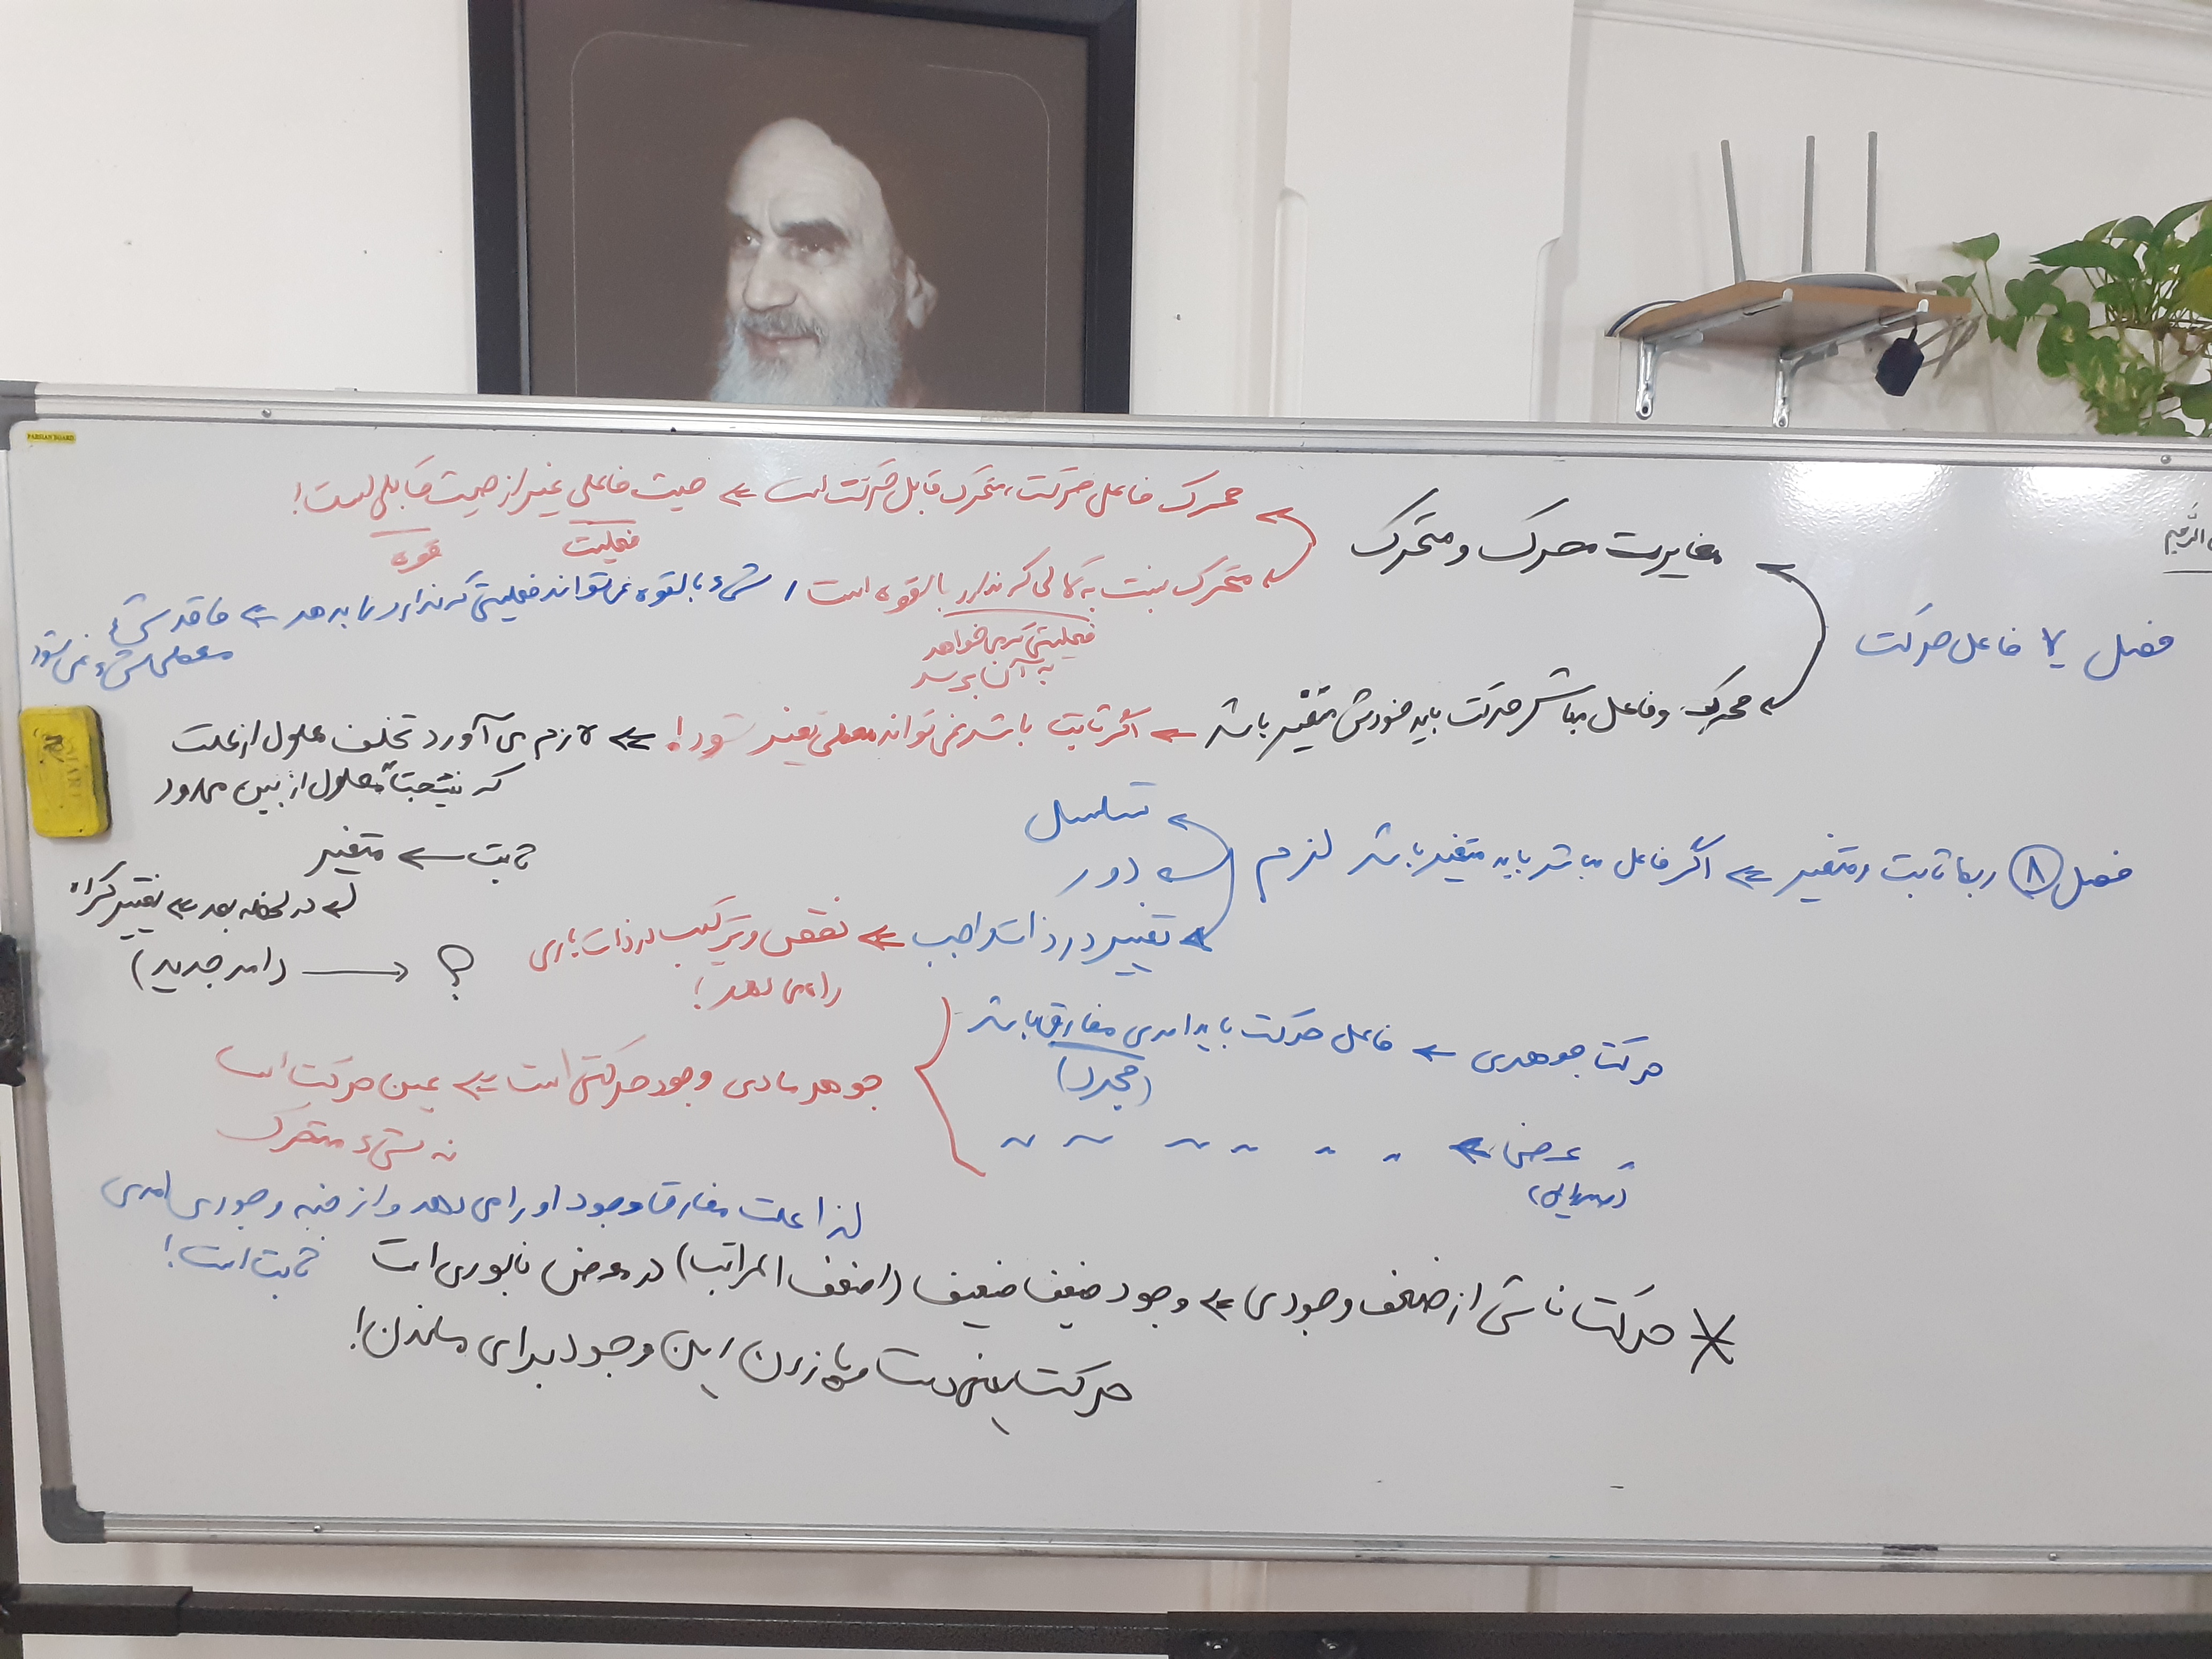 الرحیم
فصل ۷ فاعل حرکت
مغایرت محرک و متحرک
محرک فاعل حرکت، متحرک قابل حرکت است ⇐ حیث فاعلی غیر از حیث قابلی است!
فعلیت
قوه
متحرک نسبت به کمالی که ندارد بالقوه است / شیء بالقوه نمی‌تواند فعلیتی که ندارد را بدهد ⇐ فاقد شیء
معطی شیء نمی‌شود
فعلیتی که می‌خواهد
به آن برسد
محرک و فاعل مباشر حرکت باید خودش متغیر باشد ⇐ اگر ثابت باشد نمی‌تواند معطی تغیر شود! ⇐ لازم می‌آورد تخلف معلول از علت
که نتیجتاً معلول از بین می‌رود
فصل ۸ ربط ثابت و متغیر ⇐ اگر فاعل مباشر باید متغیر باشد لزم
تسلسل
دور
تغییر در ذات واجب ⇐ نقص و ترکیب در ذات باری
راه می‌دهد!
ثابت ← متغیر
در لحظه بعد ⇐ تغییر کرد
؟ → (امر جدید)
حرکت جوهری ⇐ فاعل حرکت باید امری مفارق باشد
(مجرد)
〃 عرضی ⇐ 〃 〃 〃 〃 〃 〃
جوهر مادی وجود حرکتی است ⇐ عین حرکت است
نه شیء متحرک
لذا علت مفارق وجود او را می‌دهد و از جنبه وجودی امری
ثابت است!
* حرکت ناشی از ضعف وجودی ⇐ وجود ضعیف ضعیف (اضعف المراتب) در معرض نابودی است
حرکت یعنی دست و پا زدن این وجود برای ماندن!